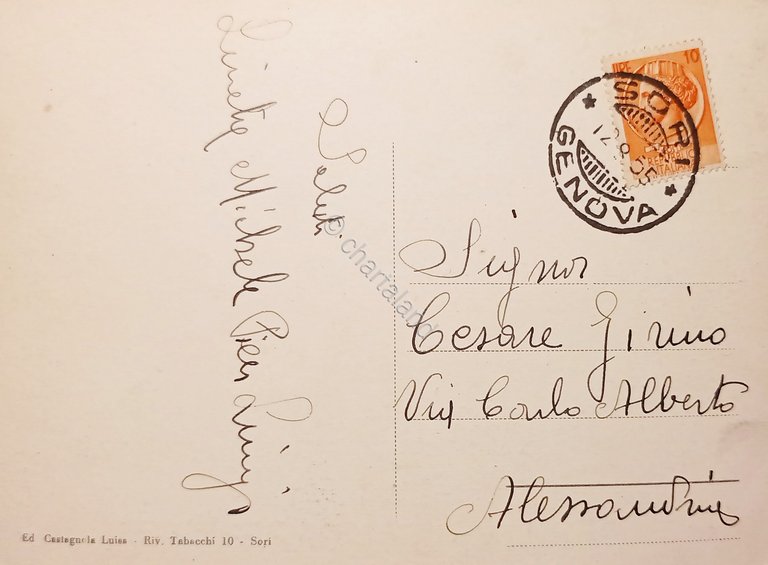 Saluti
Michele Pier Luigi
LIRE 10
SORI
12.8.55
GENOVA
REPUBBLICA
ITALIANA
Signor
Cesare Girino
Via Carlo Alberto
Alessandria
Ed Castagnola Luisa - Riv. Tabacchi 10 - Sori
© chartaland